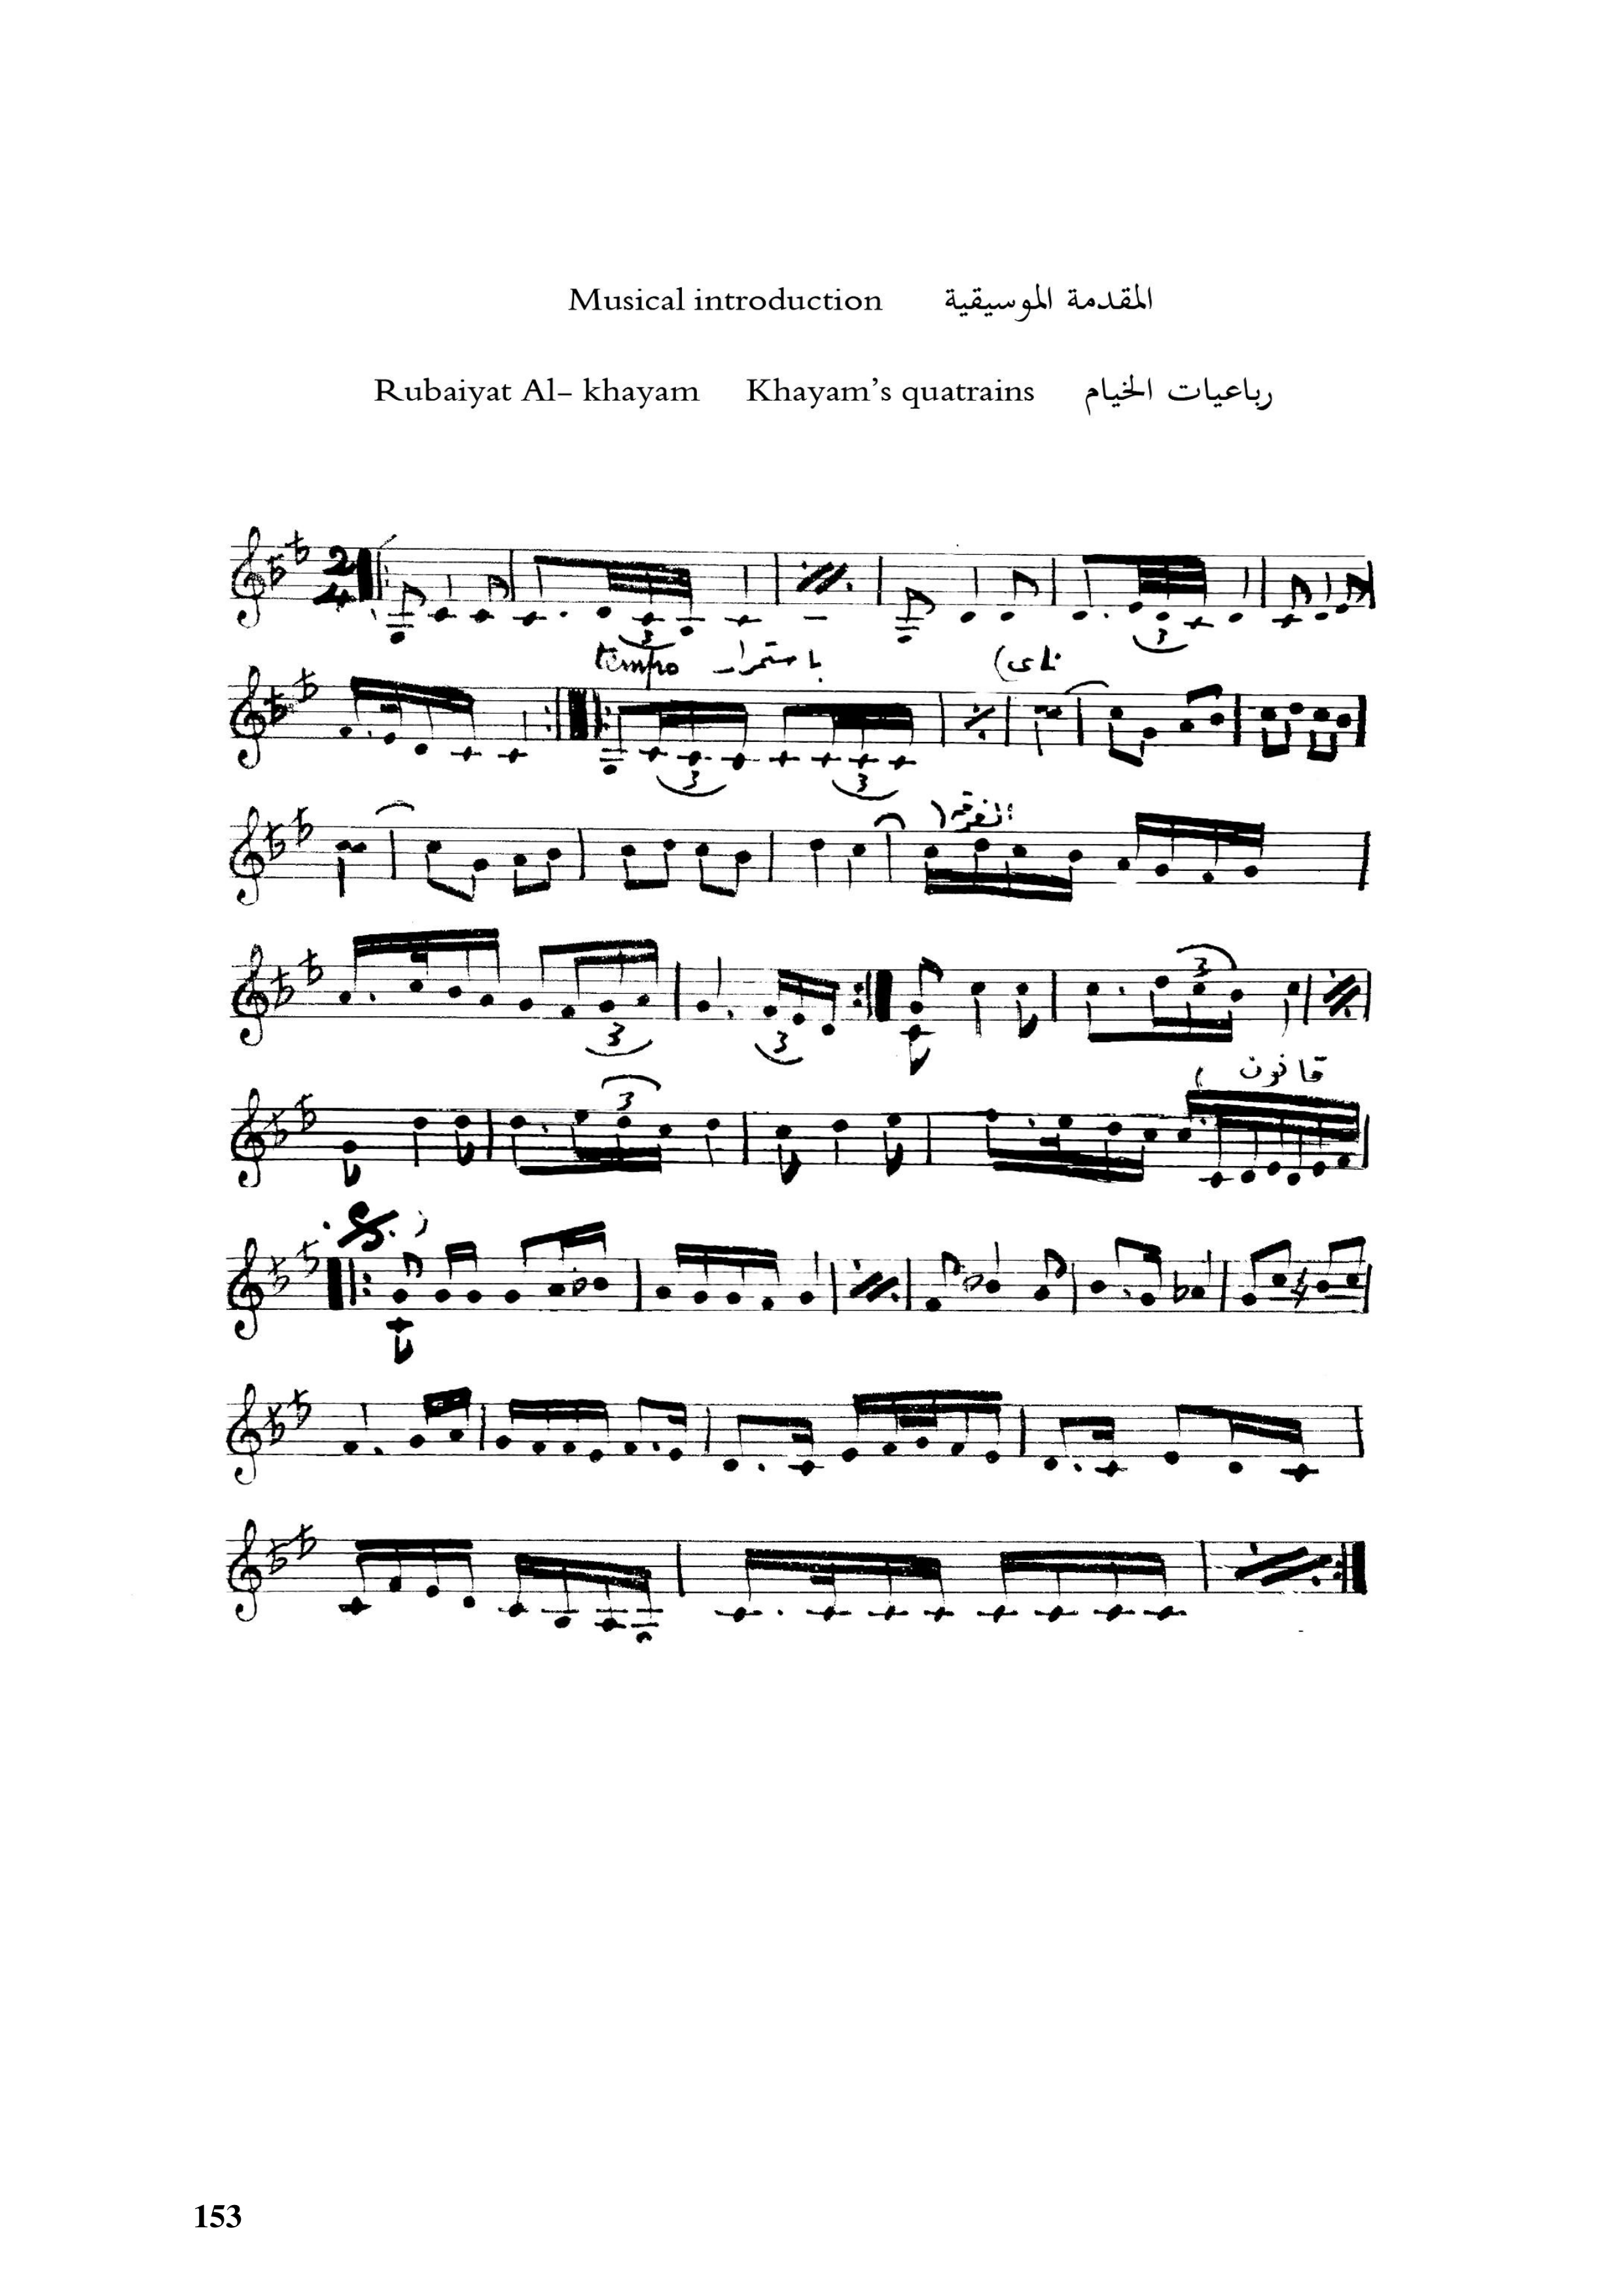 Musical introduction المقدمة الموسيقية
Rubaiyat Al- khayam Khayam's quatrains رباعيات الخيام
2
4
3 3
tempo باستمرار (ناى
3 3
3
3 3
قانون
3
153